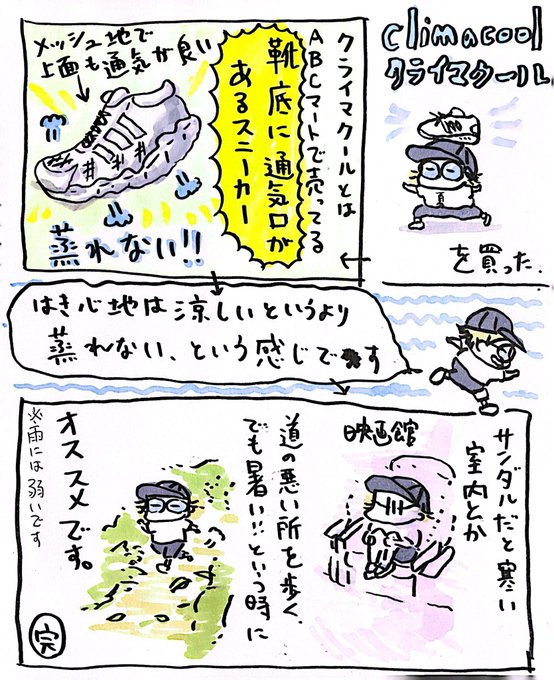 climacool
クライマクール
を買った.
クライマクールとは
ABCマートで売ってる
靴底に通気口が
あるスニーカー
メッシュ地で
上面も通気が良い
蒸れない!!
はき心地は涼しいというより
蒸れない、という感じです
サンダルだと寒い
室内とか
映画館
道の悪い所を歩く、
でも暑い!!という時に
オススメです。
※雨には弱いです
完